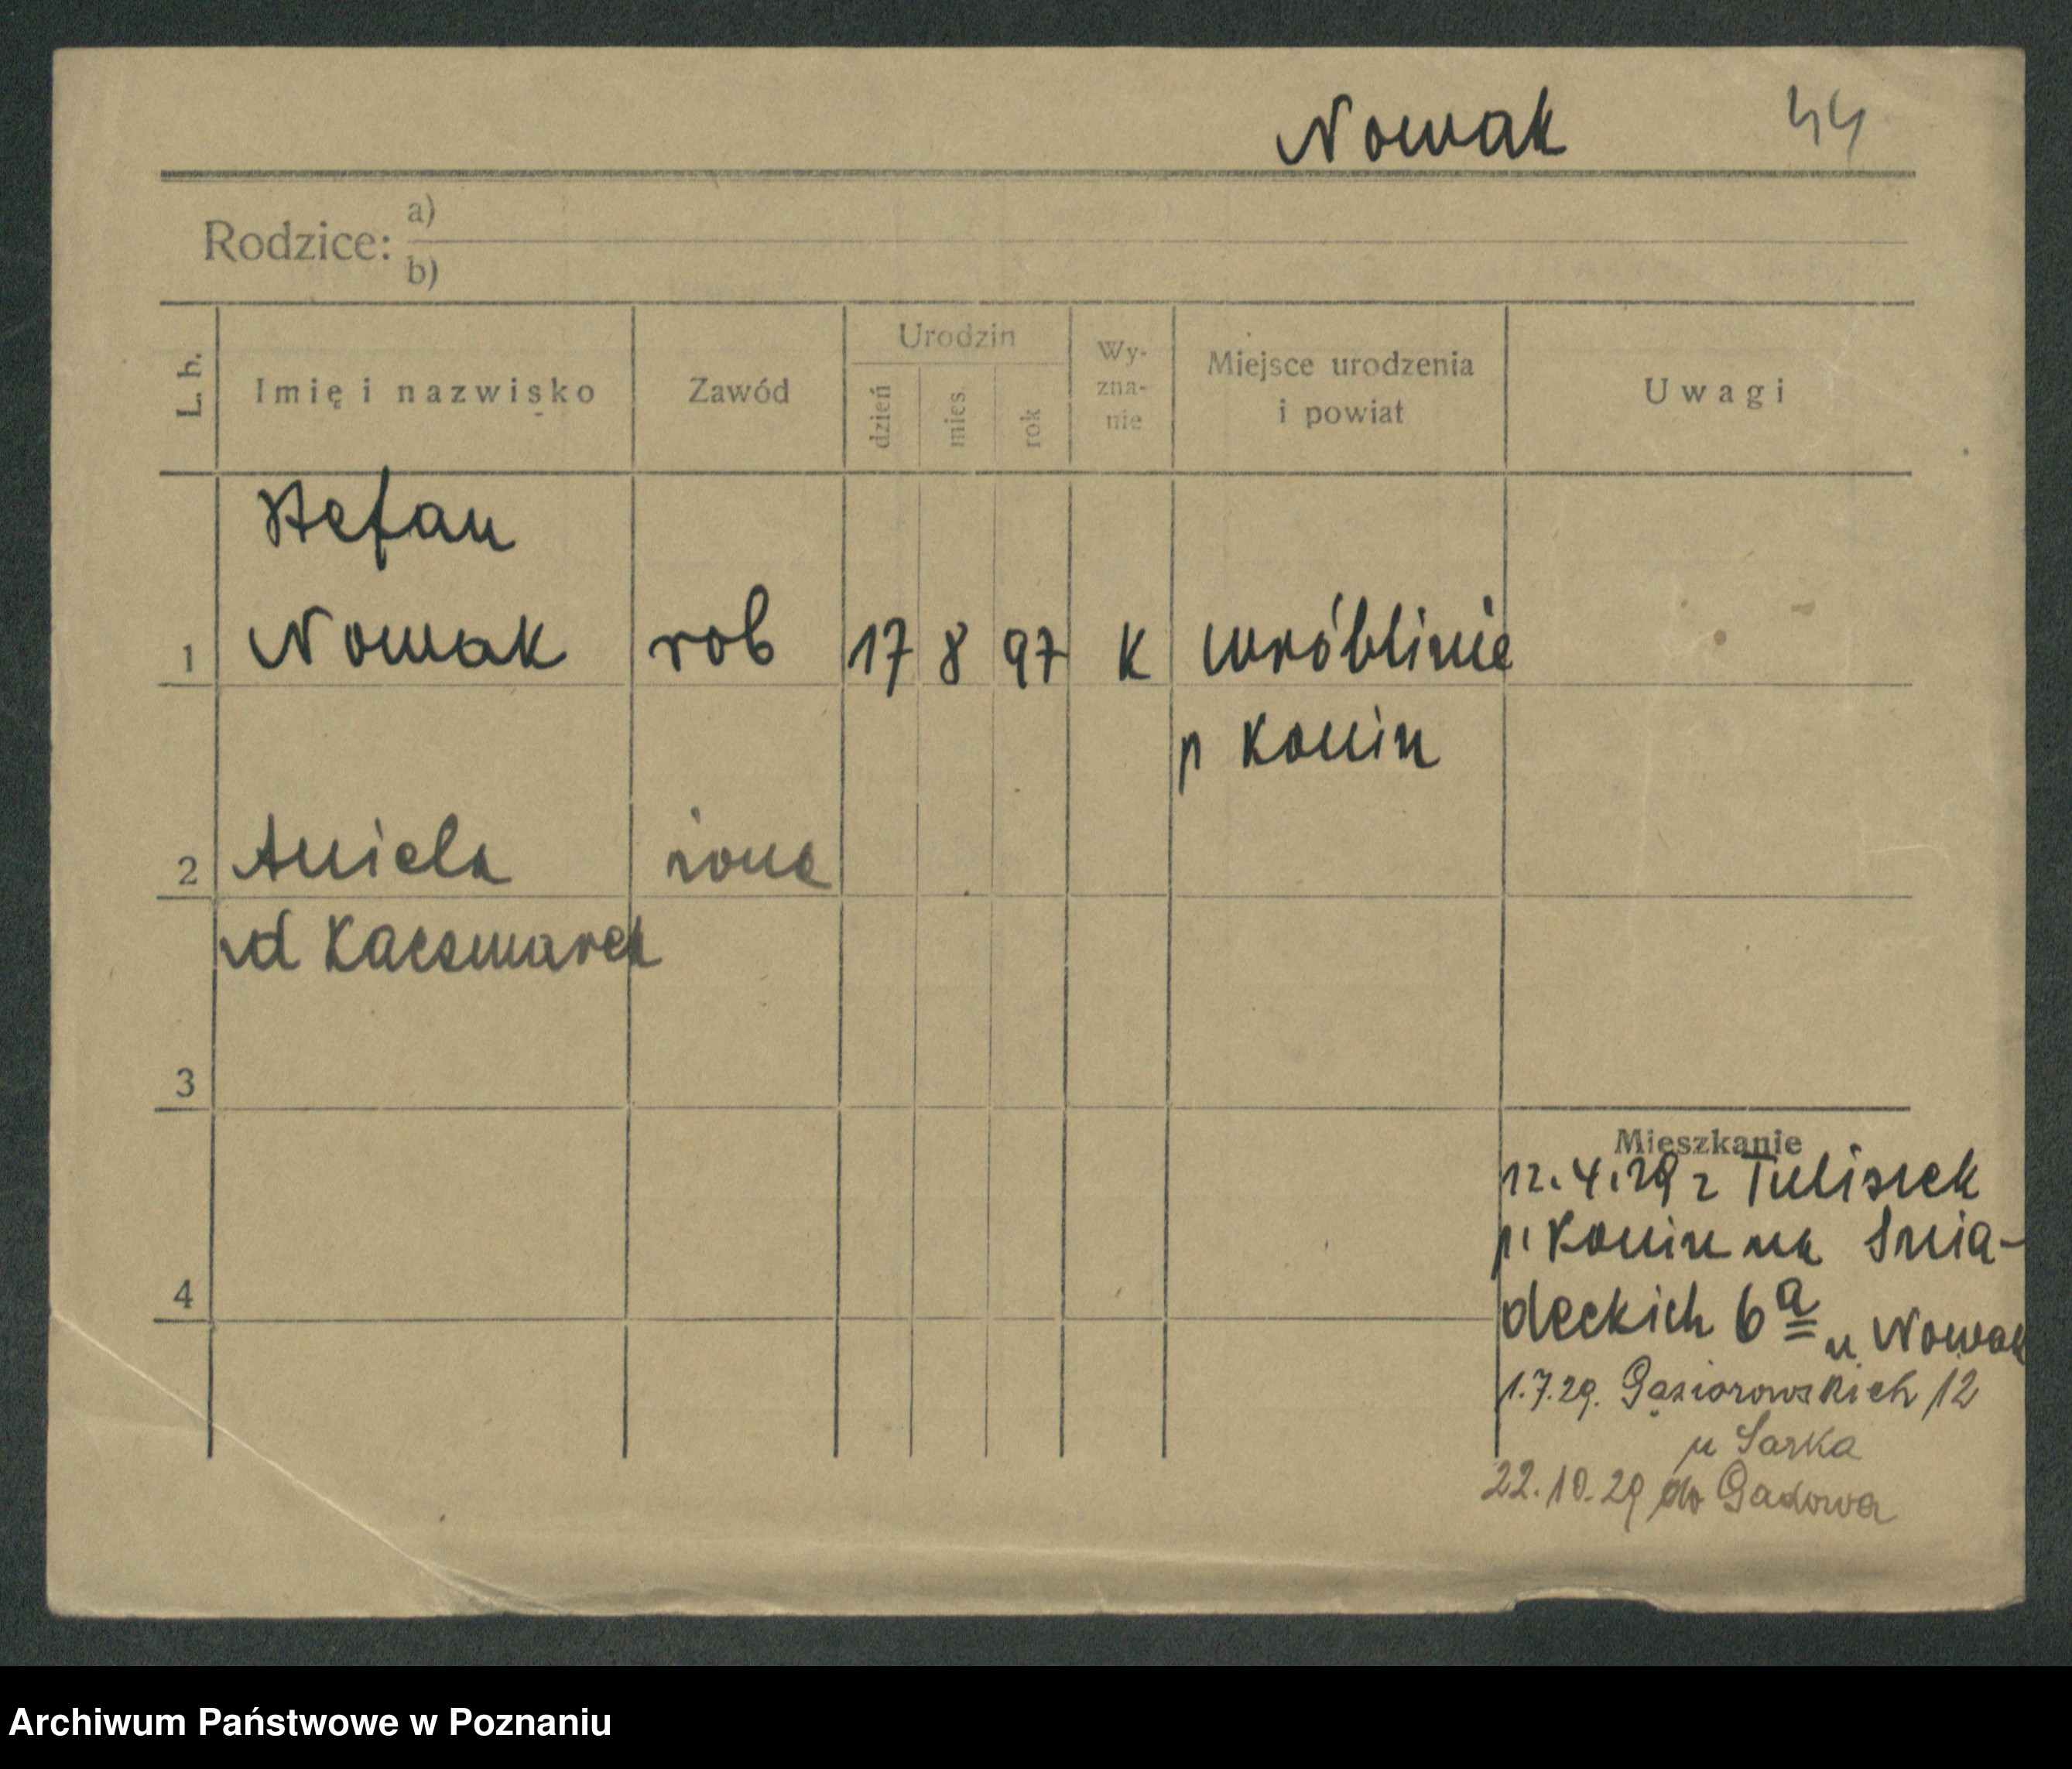 Nowak 44
Rodzice: a)
b)
L. b.
Imię i nazwisko
Zawód
Urodzin
dzień
mies.
rok
Wy-
zna-
nie
Miejsce urodzenia
i powiat
Uwagi
Stefan
1 Nowak rob 17 8 97 K Wróblinie
p Konin
2 Aniela żona
vd Kaczmarek
3
Mieszkanie
12.4.29 z Tuliszek
p. Konin na Snia-
4
deckich 6a u Nowak
1.7.29. Gąsiorowskich 12
u Sarka
22.10.29 do Gadowa
Archiwum Państwowe w Poznaniu